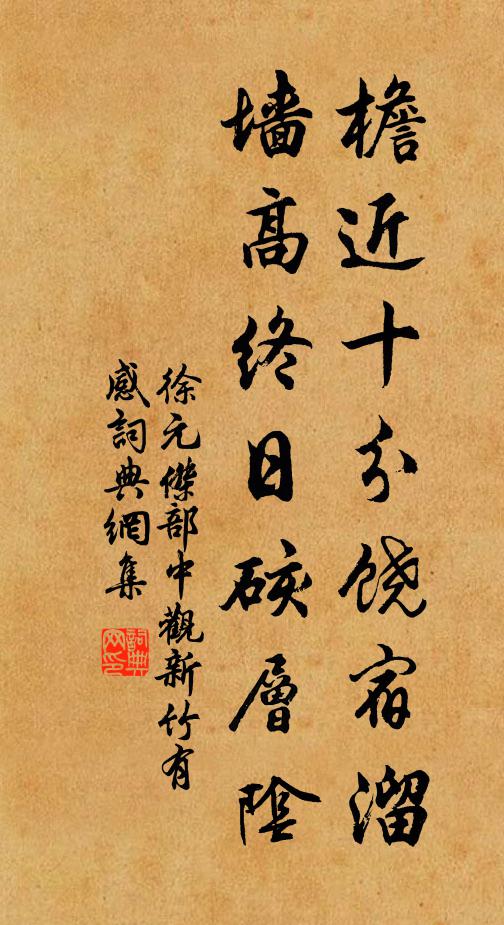 檐近十分饶宿溜
墙高终日硋層陰
徐元傑部中觀新竹有
感詞典網集
詞典网印